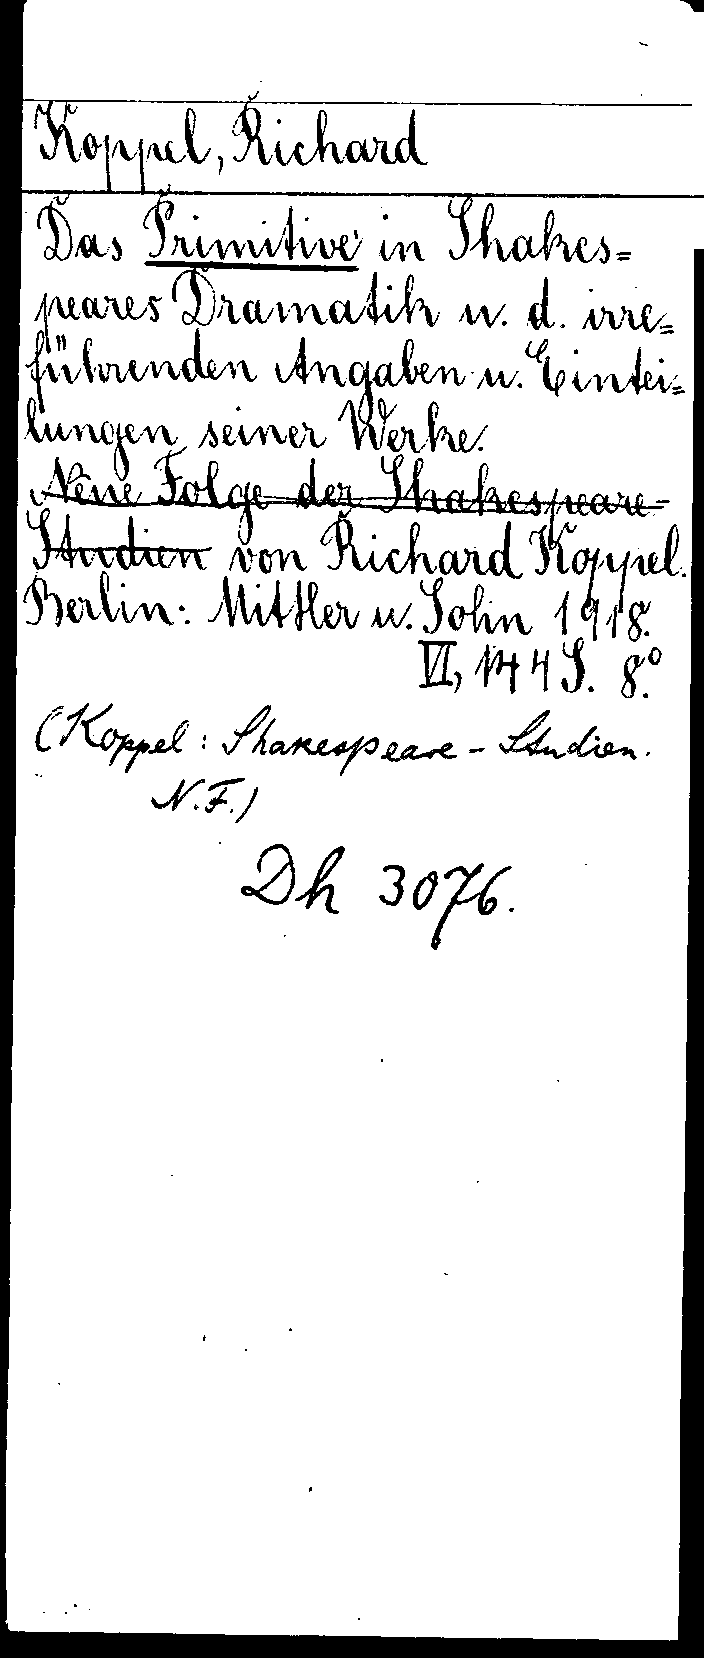 Koppel, Richard
Das Primitive in Shakes=
peares Dramatik u. d. irre=
führenden Angaben u. Eintei=
lungen seiner Werke.
Neue Folge der Shakespeare-
Studien von Richard Koppel.
Berlin: Mittler u. Sohn 1918.
VI, 144 S. 8.°
(Koppel: Shakespeare-Studien.
N.F.)
Dh 3076.